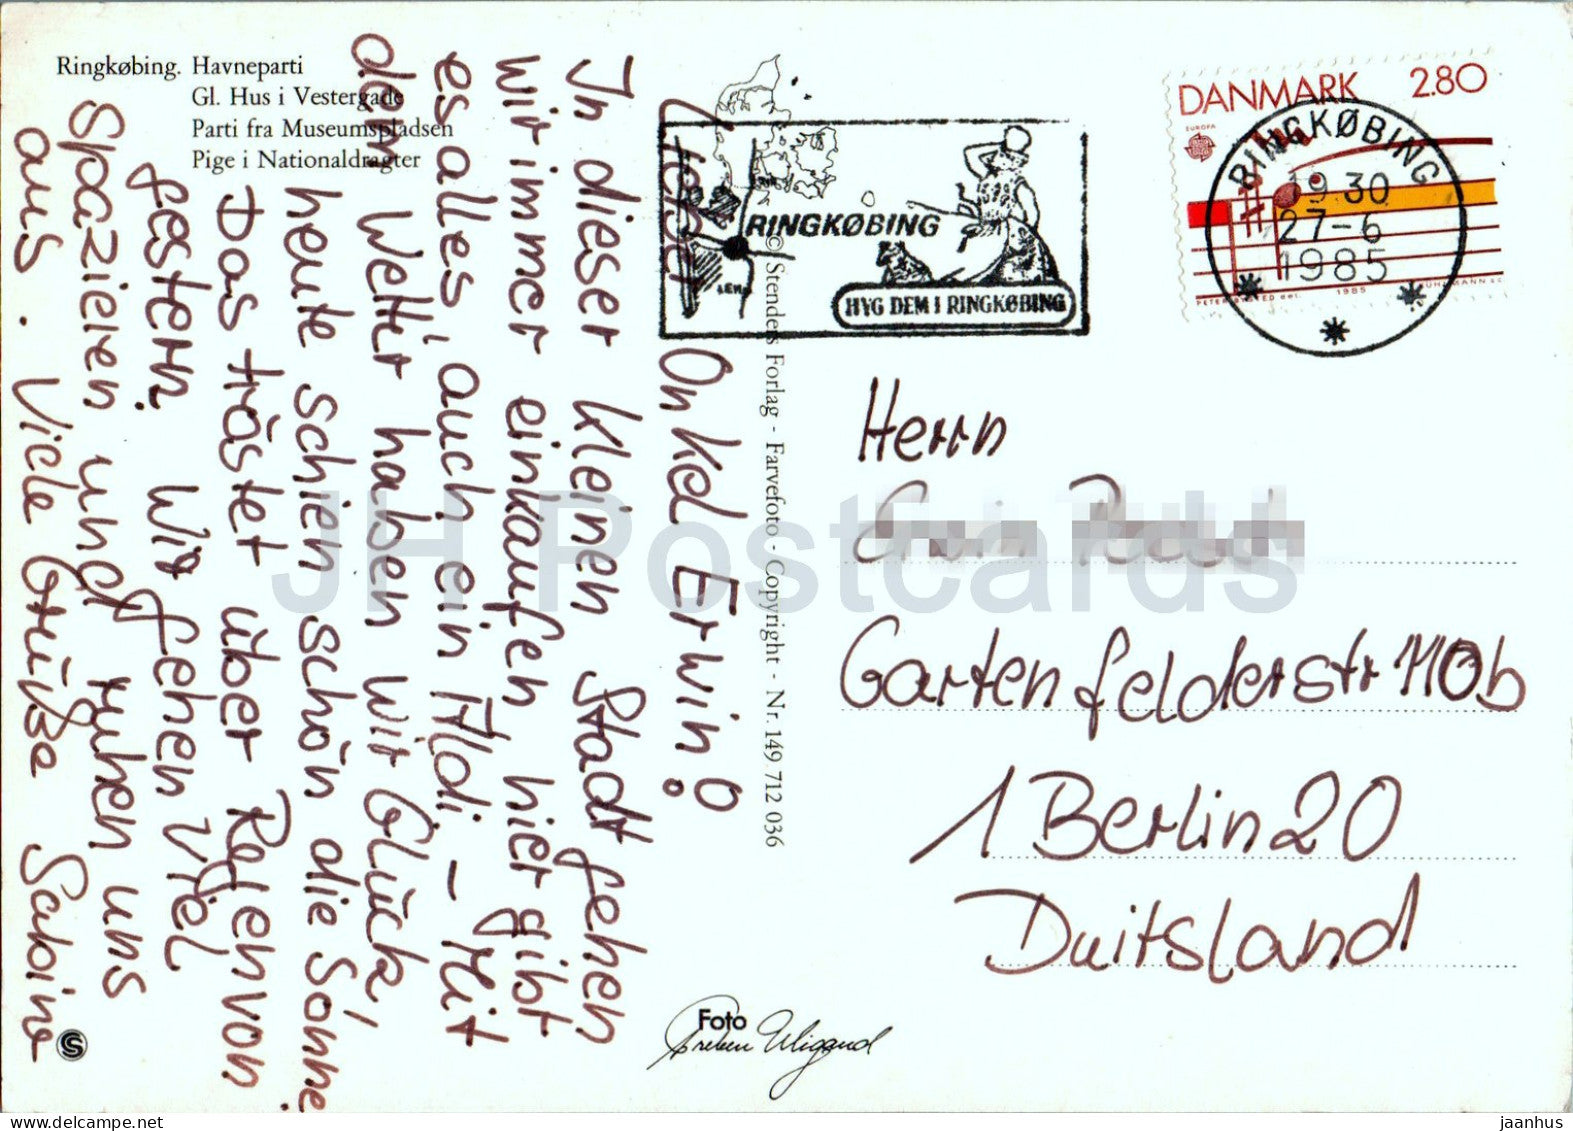 Ringkøbing. Havneparti
Gl. Hus i Vestergade
Parti fra Museumspladsen
Pige i Nationaldragter
Lieber Onkel Erwin!
In dieser kleinen Stadt gehen
wir immer einkaufen, hier gibt
es alles, auch ein Aldi. – Mit
dem Wetter haben wir Glück,
heute schien schön die Sonne.
Das tröstet über Regen von
gestern. Wir gehen viel
Spazieren und ruhen uns
aus. Viele Grüße Sabine
© Stenders Forlag - Farvefoto - Copyright - Nr. 149 712 036
RINGKØBING
HYG DEM I RINGKØBING
DANMARK 2.80
EUROPA
RINGKØBING
19 30
27-6
1985
1985
Herrn
Gartenfelderstr 110b
1 Berlin 20
Duitsland
Foto
Preben Wigand
JH Postcards
jaanhus
www.delcampe.net